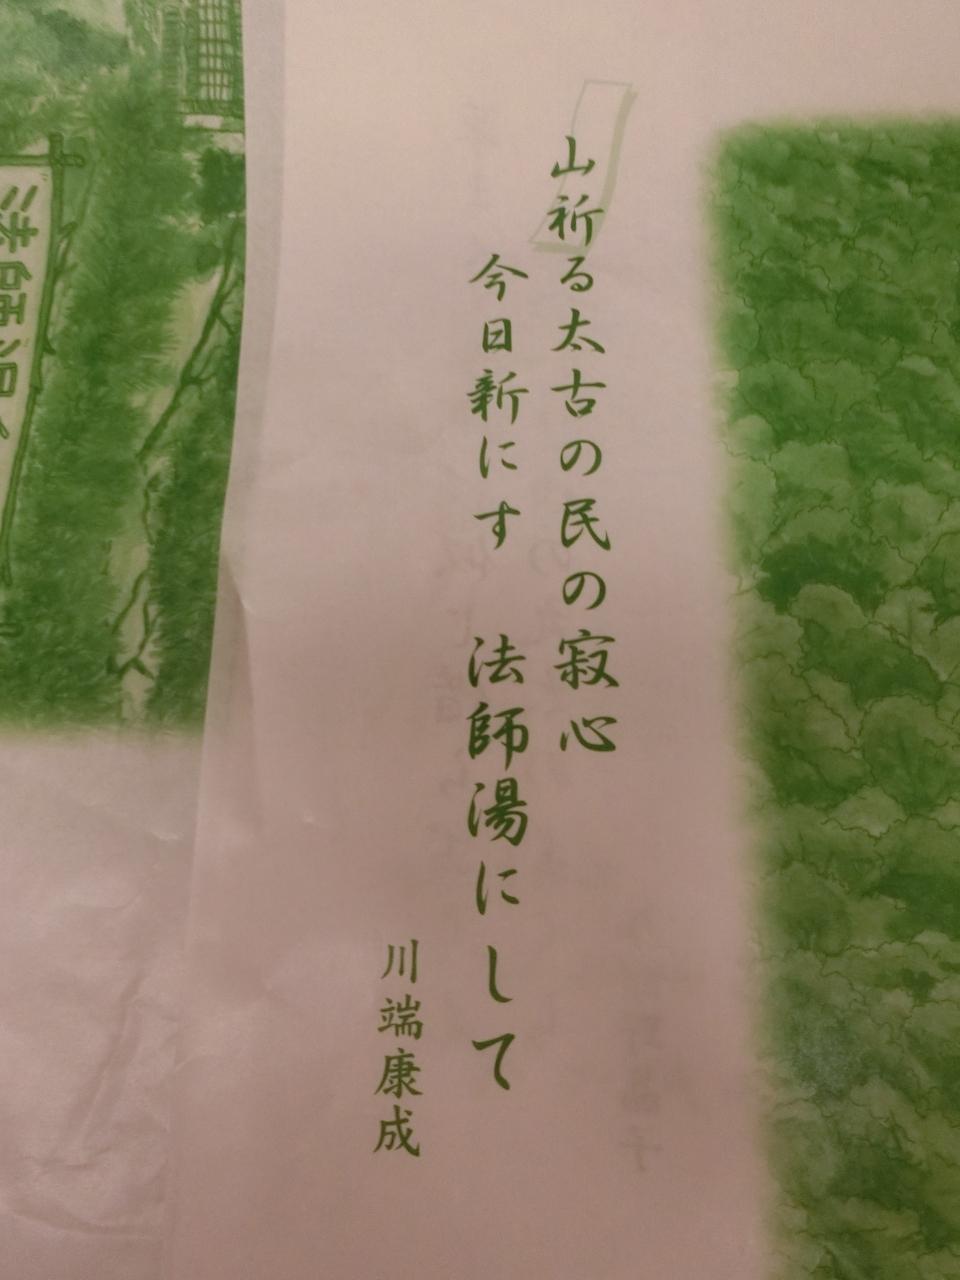 山祈る太古の民の寂心
今日新にす　法師湯にして
川端康成